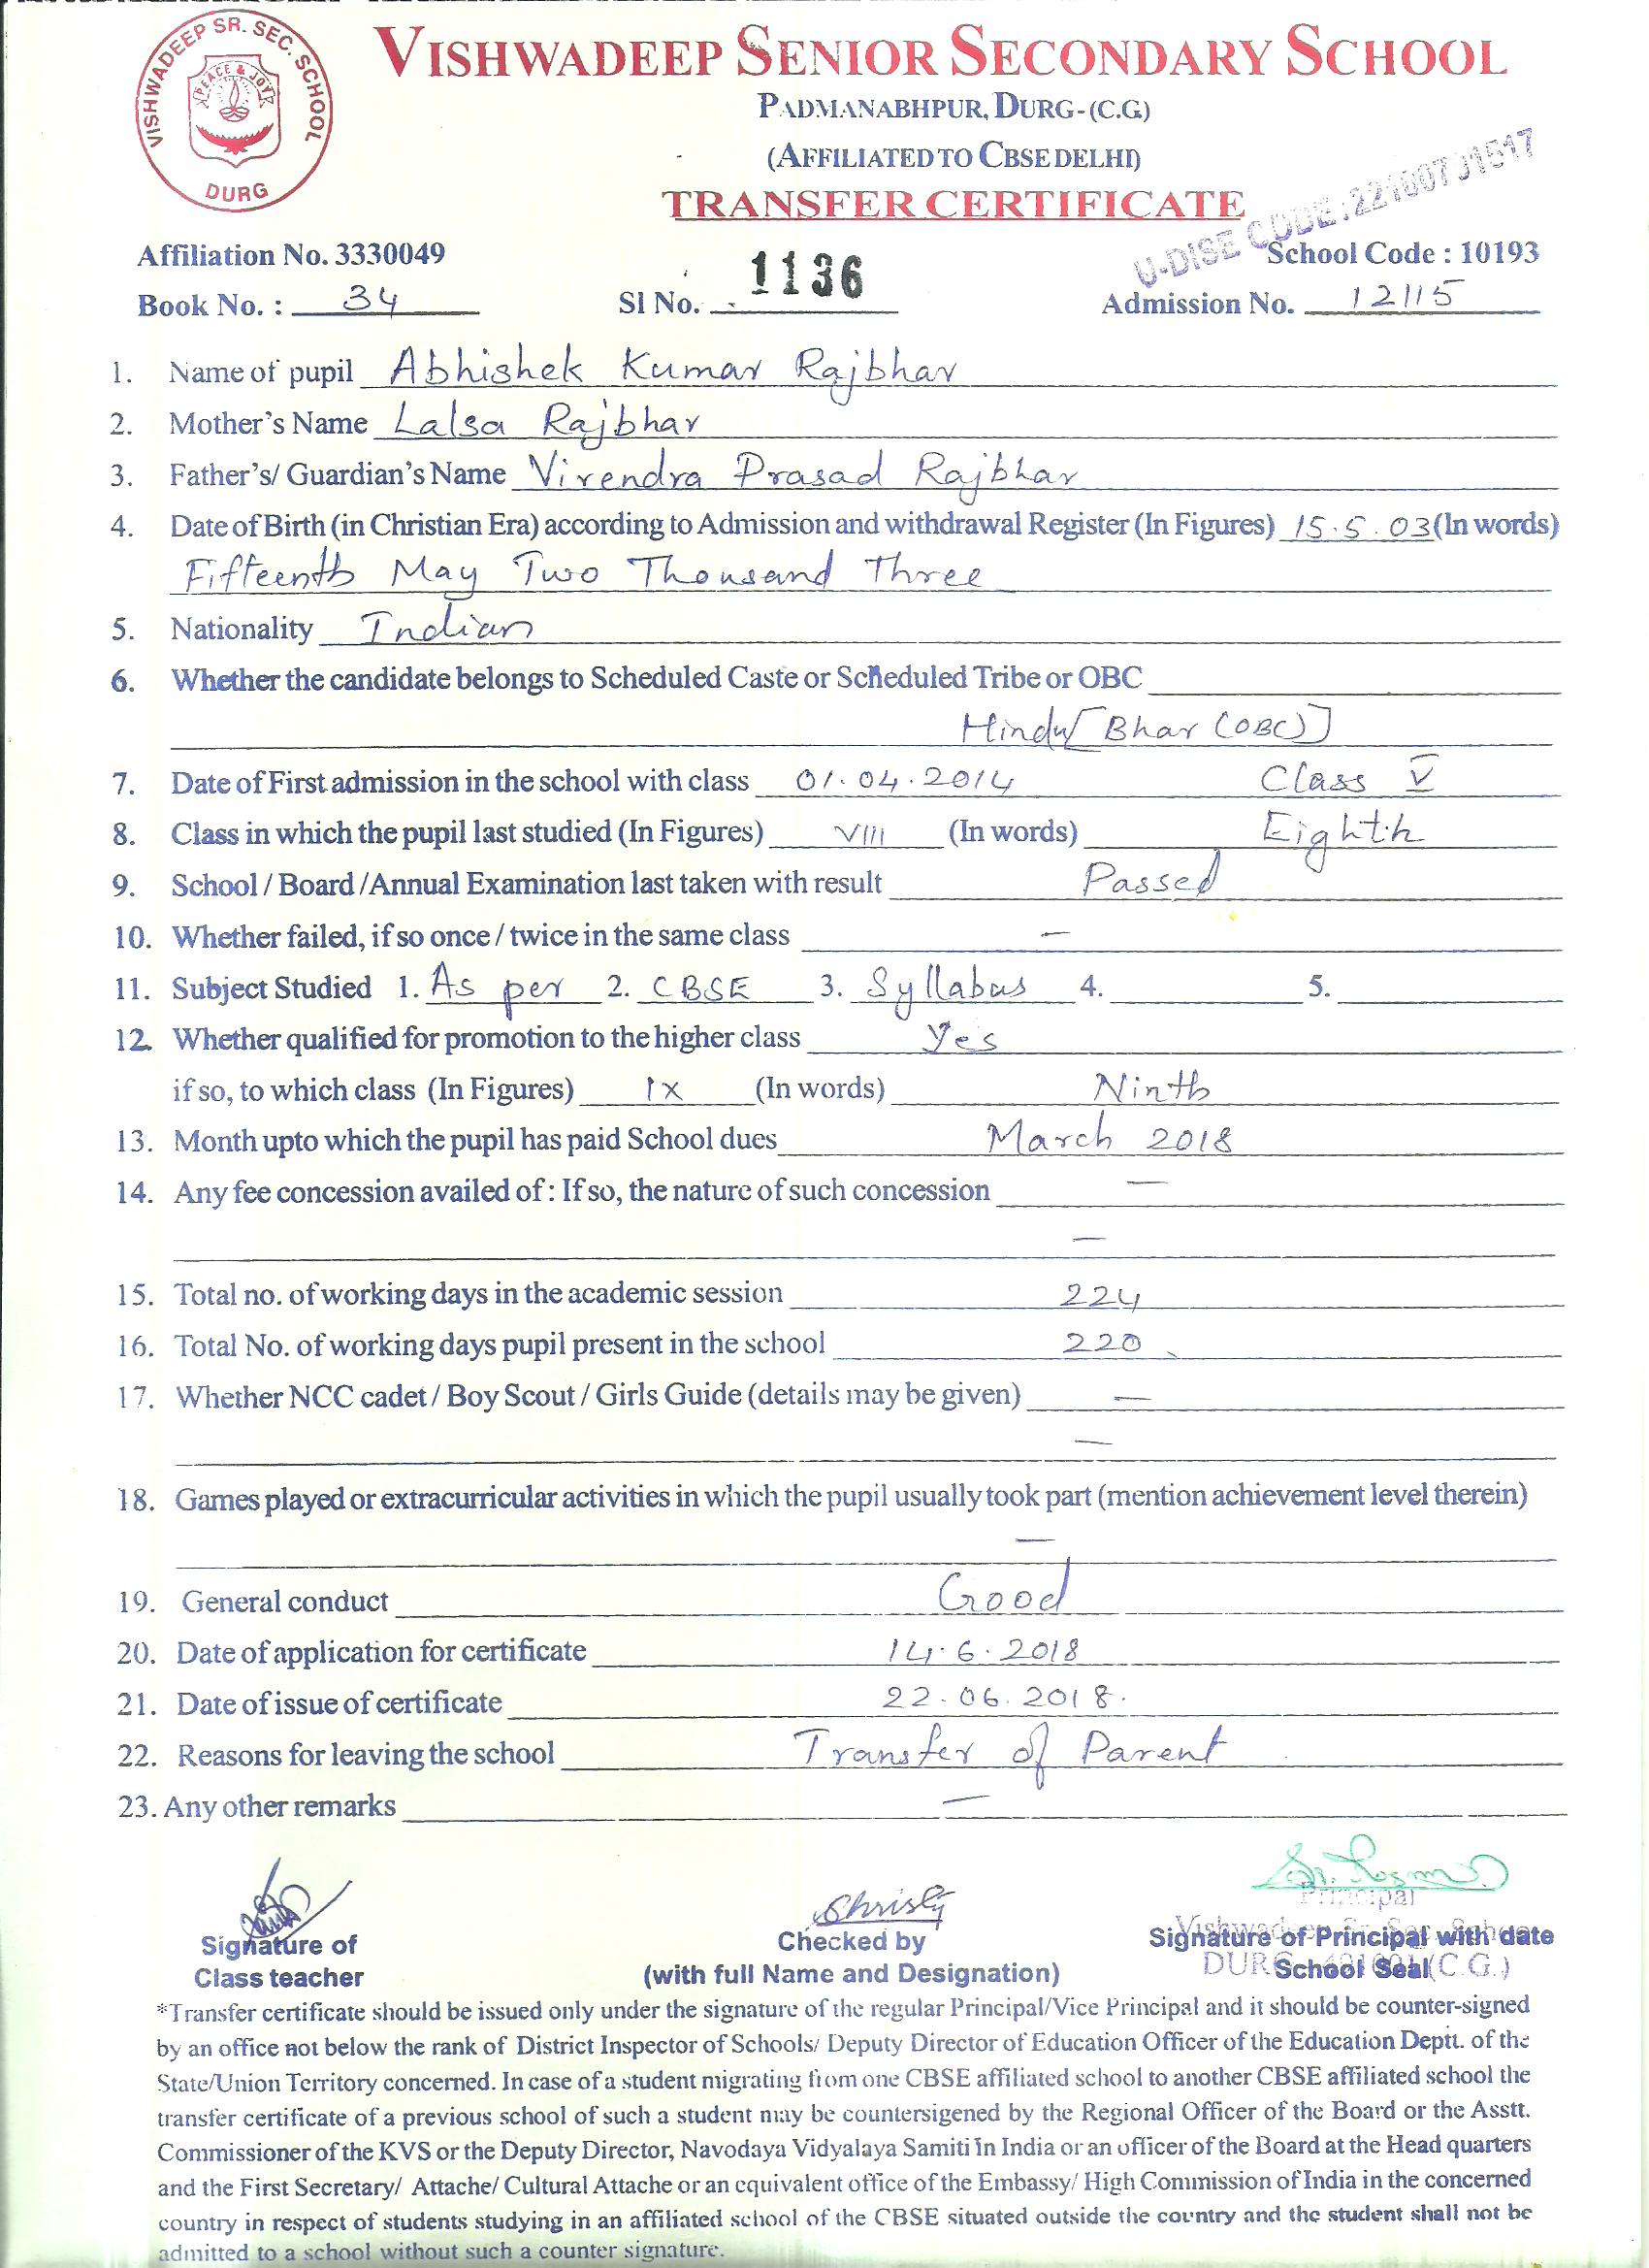 VISHWADEEP SR. SEC. SCHOOL
PEACE & JOY
DURG
VISHWADEEP SENIOR SECONDARY SCHOOL
PADMANABHPUR, DURG-(C.G.)
(AFFILIATED TO CBSE DELHI)
TRANSFER CERTIFICATE
U-DISE CODE:22100701517
Affiliation No. 3330049 School Code : 10193
Book No. : 34 Sl No. 1136 Admission No. 12115
1. Name of pupil Abhishek Kumar Rajbhar
2. Mother's Name Lalsa Rajbhar
3. Father's/ Guardian's Name Virendra Prasad Rajbhar
4. Date of Birth (in Christian Era) according to Admission and withdrawal Register (In Figures) 15.5.03 (In words)
Fifteenth May Two Thousand Three
5. Nationality Indian
6. Whether the candidate belongs to Scheduled Caste or Scheduled Tribe or OBC
Hindu [Bhar (OBC)]
7. Date of First admission in the school with class 01.04.2014 Class V
8. Class in which the pupil last studied (In Figures) VIII (In words) Eighth
9. School / Board /Annual Examination last taken with result Passed
10. Whether failed, if so once / twice in the same class —
11. Subject Studied 1. As per 2. CBSE 3. Syllabus 4. 5.
12. Whether qualified for promotion to the higher class Yes
if so, to which class (In Figures) IX (In words) Ninth
13. Month upto which the pupil has paid School dues March 2018
14. Any fee concession availed of : If so, the nature of such concession —
—
15. Total no. of working days in the academic session 224
16. Total No. of working days pupil present in the school 220
17. Whether NCC cadet / Boy Scout / Girls Guide (details may be given) —
—
18. Games played or extracurricular activities in which the pupil usually took part (mention achievement level therein)
—
19. General conduct Good
20. Date of application for certificate 14.6.2018
21. Date of issue of certificate 22.06.2018.
22. Reasons for leaving the school Transfer of Parent
23. Any other remarks —
Christy
Principal
Vishwadeep Sr. Sec. School
DURG (C.G.)
Signature of Checked by Signature of Principal with date
Class teacher (with full Name and Designation) School Seal
*Transfer certificate should be issued only under the signature of the regular Principal/Vice Principal and it should be counter-signed
by an office not below the rank of District Inspector of Schools/ Deputy Director of Education Officer of the Education Deptt. of the
State/Union Territory concerned. In case of a student migrating from one CBSE affiliated school to another CBSE affiliated school the
transfer certificate of a previous school of such a student may be countersigened by the Regional Officer of the Board or the Asstt.
Commissioner of the KVS or the Deputy Director, Navodaya Vidyalaya Samiti in India or an officer of the Board at the Head quarters
and the First Secretary/ Attache/ Cultural Attache or an equivalent office of the Embassy/ High Commission of India in the concerned
country in respect of students studying in an affiliated school of the CBSE situated outside the country and the student shall not be
admitted to a school without such a counter signature.